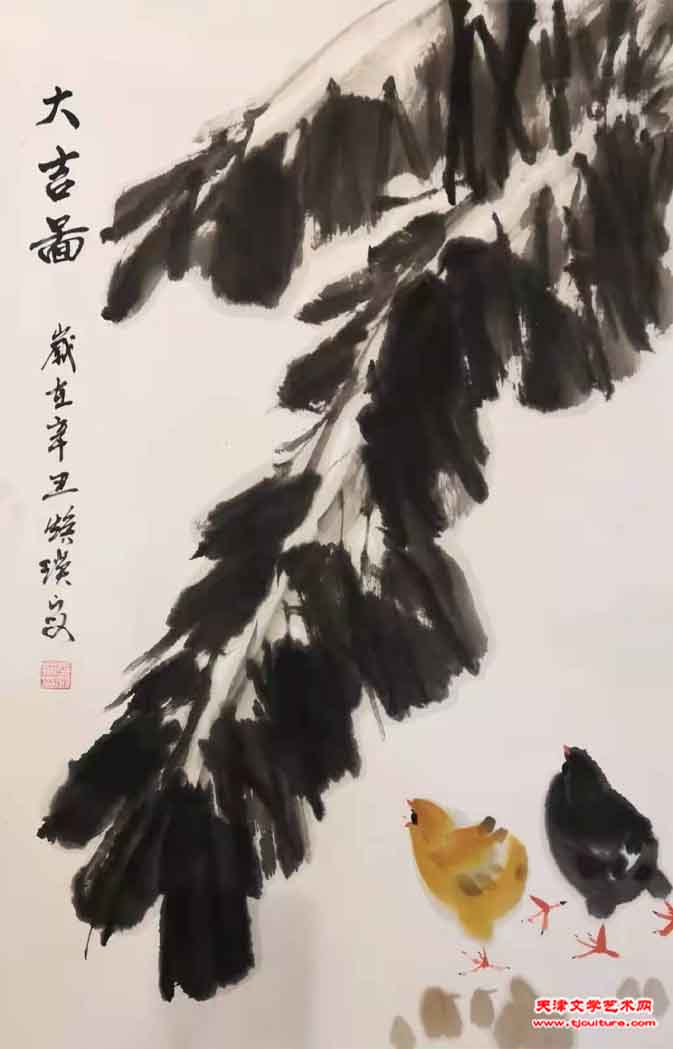 大吉图
岁在辛丑
天津文学艺术网
www.tjculture.com